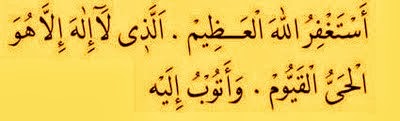 أَسْتَغْفِرُ اللّٰهَ الْعَـظِيْمْ . اَلَّذِى لَآإِلٰهَ إِلَّا هُوَ
الْحَىُّ الْقَيُّوْمْ . وَأَتُوْبُ إِلَيْه